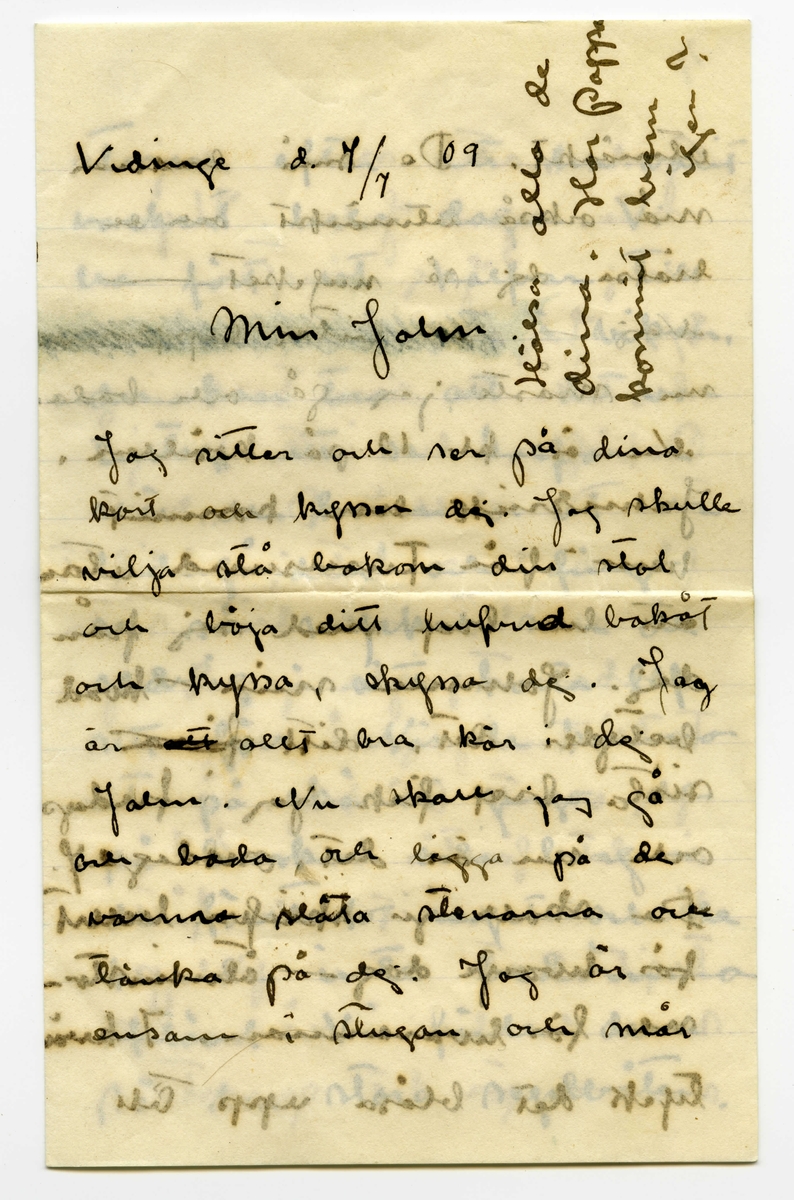 Vidinge d. 7/7 09
Min John
Jag sitter och ser på dina
kort och kysser dej. Jag skulle
vilja stå bakom din stol
och böja ditt hufvud bakåt
och kyssa, kyssa dej. Jag
är allt bra kär i dej
John. Nu skall jag gå
och bada och ligga på de
varma släta stenarna och
tänka på dej. Jag är
ensam i stugan och mår
Hälsa alla de
dina. Har Pappa
kommit hem
än?